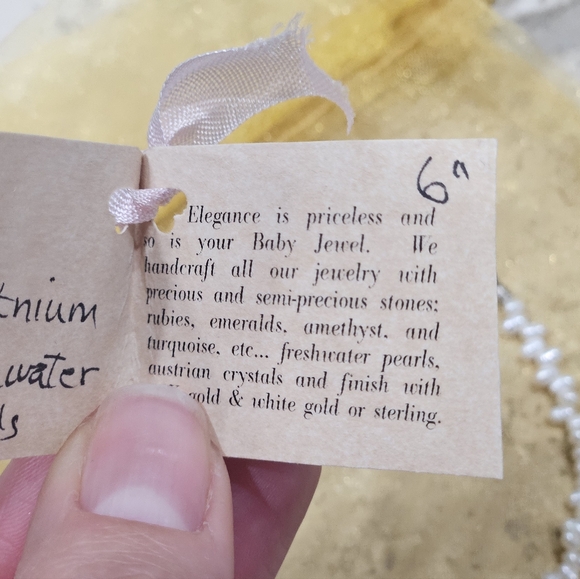 6"
Elegance is priceless and
so is your Baby Jewel. We
handcraft all our jewelry with
precious and semi-precious stones;
rubies, emeralds, amethyst, and
turquoise, etc... freshwater pearls,
austrian crystals and finish with
gold & white gold or sterling.
tnium
water
ls